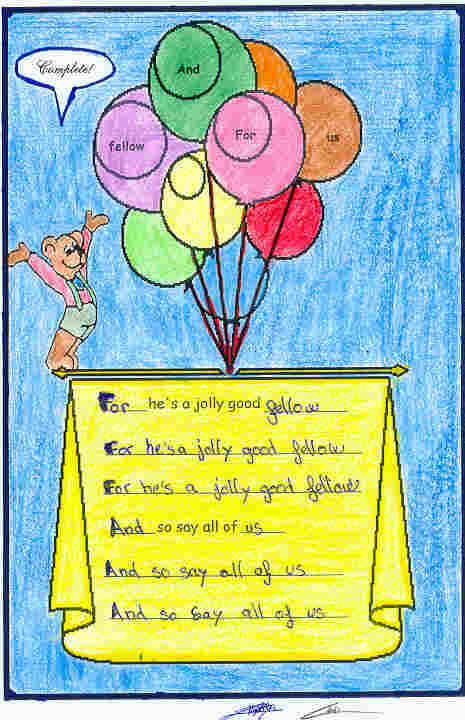 Complete!
And
fellow
For
us
For he's a jolly good fellow
For he's a jolly good fellow
For he's a jolly good fellow
And so say all of us
And so say all of us
And so say all of us